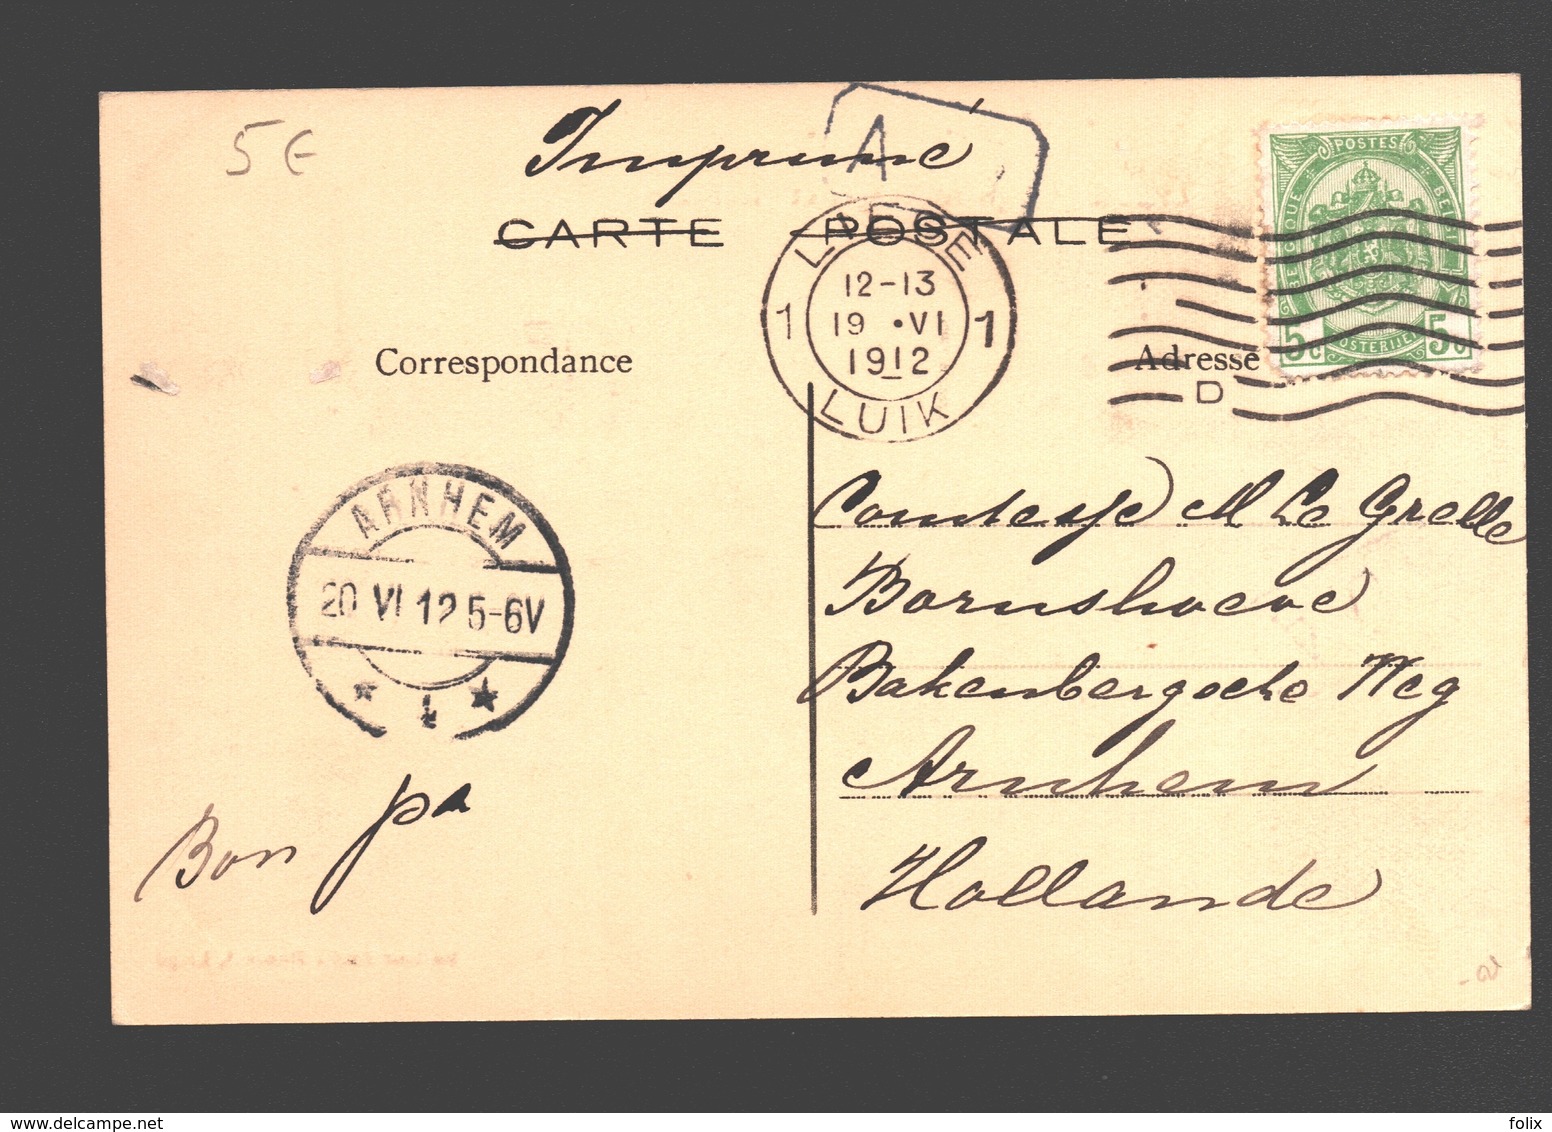 5 €
Imprimé
A
CARTE POSTALE
LIEGE
12-13
1 19 •VI 1
1912
LUIK
POSTES
BELGIQUE
POSTERIJEN
5c 5c
Correspondance
Adresse
D
ARNHEM
20 VI 12 5-6V
* 1 *
Comtesse M Le Grelle
Bornshoeve
Bakenbergsche Weg
Arnhem
Hollande
Bon pa
folix